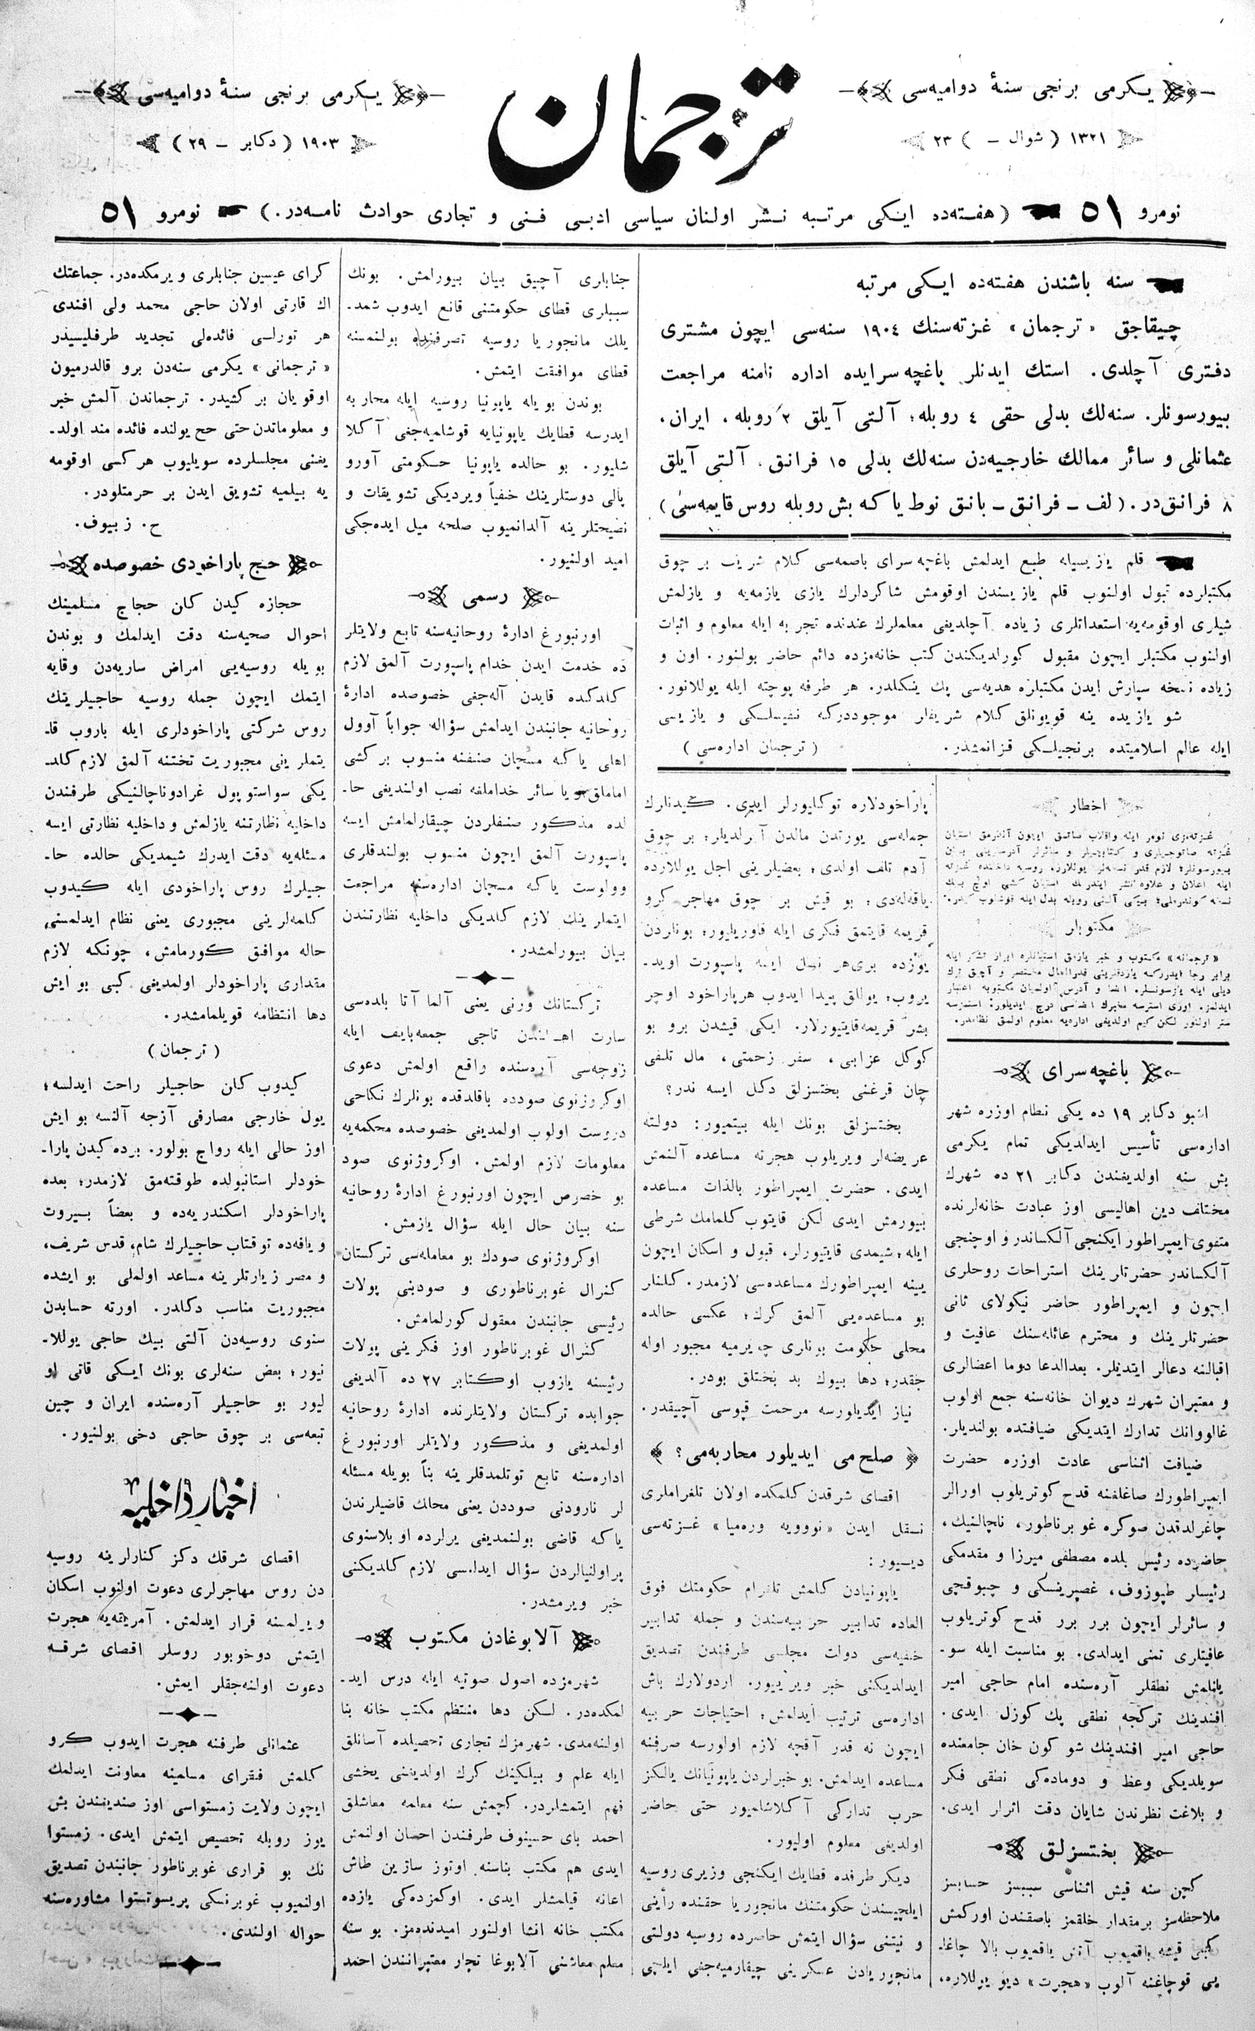 ترجمان
یکرمی برنجی سنۀ دوامیه‌سی
۱۳۲۱ (شوال – ) ۲۳
یکرمی برنجی سنۀ دوامیه‌سی
۱۹۰۳ (دکابر – ۲۹ )
نومرو ۵۱ (هفته‌ده ایکی مرتبه نشر اولنان سیاسی ادبی فنی و تجاری حوادث نامه‌در.) نومرو ۵۱
سنه باشندن هفته‌ده ایکی مرتبه
چیقاجق «ترجمان» غزته‌سنك ۱۹۰٤ سنه‌سی ایچون مشتری
دفتری آچلدی. استك ایدنلر باغچه‌سرایده اداره نامنه مراجعت
بیورسونلر. سنه‌لك بدلی حقی ٤ روبله؛ آلتی آیلق ۲ روبله، ایران،
عثمانلی و سائر ممالك خارجیه‌دن سنه‌لك بدلی ۱۵ فرانق. آلتی آیلق
۸ فرانق‌در. (لف – فرانق – بانق نوط یاکه بش روبله روس قایمه‌سی)
قلم یازیسیله طبع ایدلمش باغچه‌سرای باصمه‌سی کلام شریف بر چوق
مکتبلرده قبول اولنوب قلم یازیسندن اوقومش شاکردلرك یازی یازمه‌یه و یازلمش
شیلری اوقومه‌یه استعدادلری زیاده آچلدیغی معلملرك عندنده تجربه ایله معلوم و اثبات
اولنوب مکتبلر ایچون مقبول کورلدیکندن کتب خانه‌مزده دائم حاضر بولنور. اون و
زیاده نسخه سپارش ایدن مکتبلره هدیه‌سی پك ینکلدر. هر طرفه پوچته ایله یوللانور.
شو یازیده ینه قویونلق کلام شریفلر موجوددرکه نفیسلکی و یازیسی
ایله عالم اسلامیتده برنجیلکی قزانمشدر. (ترجمان اداره‌سی)
اخطار
مکتوبلر
باغچه‌سرای
اشبو دکابر ۱۹ ده یکی نظام اوزره شهر
اداره‌سی تأسیس ایدلدیکی تمام یکرمی
بش سنه اولدیغندن دکابر ۲۱ ده شهرك
مختلف دین اهالیسی اوز عبادت خانه‌لرنده
متفوی ایمپراطور ایکنجی آلکساندر و اوچنجی
آلکساندر حضرتلرینك استراحات روحلری
ایچون و ایمپراطور حاضر نیکولای ثانی
حضرتلرینك و محترم عائله‌سنك عافیت و
اقبالنه دعالر ایتدیلر. بعدالدعا دوما اعضالری
و معتبران شهرك دیوان خانه‌سنه جمع اولوب
غالووانك تدارك ایتدیکی ضیافتده بولندیلر.
ضیافت اثناسی عادت اوزره حضرت
ایمپراطورك صاغلغنه قدح کوتریلوب اورالر
چاغرلدقدن صوکره غوبرناطور، ناچالنیك،
حاضرده رئیس بلده مصطفی میرزا و مقدمکی
رئیسلر طپوزوف، غصپرینسکی و چبوقچی
و سائرلر ایچون برر برر قدح کوتریلوب
عافیتلری تمنی ایدلدی. بو مناسبت ایله سو-
یلنلمش نطقلر آره‌سنده امام حاجی امیر
افندینك ترکجه نطقی پك کوزل ایدی.
حاجی امیر افندینك شو کون خان جامعنده
سویلدیکی وعظ و دوماده‌کی نطقی فکر
و بلاغت نظرندن شایان دقت اثرلر ایدی.
بختسزلق
کچن سنه قیش اثناسی سببسز حسابسز
ملاحظه‌سز برمقدار خلقمز باصقندن اورکمش
کبی قیشه باقمیوب آتش یاقمیوب بالا چاغا-
یی قوجاغنه آلوب «هجرت» دیو یوللاره،
پاراخودلاره توکلیورلر ایدی. کیدنلرك
جمله‌سی یورتدن مالدن آیرلدیلر؛ بر چوق
آدم تلف اولدی؛ بعضیلرینی اجل یوللارده
یاقه‌له‌دی؛ بو قیش بر چوق مهاجر کرو
قریمه قایتمق فکری ایله قاوریلیور؛ بونلردن
یوزده بری‌هر نصل ایسه پاسپورت اوید-
یروب، یوللق پیدا ایدوب هرپاراخود اوچر
بشر قریمه‌قایتیورلار. ایکی قیشدن برو بو
کوکل عزابی، سفر زحمتی، مال تلفی
چان قرغنی بختسزلق دکل ایسه ندر؟
بختسزلق بونك ایله بیتمیور: دولته
عریضه‌لر ویریلوب هجرته مساعده آلنمش
ایدی. حضرت ایمپراطور بالذات مساعده
بیورمش ایدی لکن قایتوب کلمامك شرطی
ایله؛ شیمدی قایتیورلر، قبول و اسکان ایچون
یینه ایمپراطورك مساعده‌سی لازمدر. کلنلر
بو مساعده‌یی آلمق کرك؛ عکسی حالده
محلی حکومت بونلری چویرمیه مجبور اوله
جقدر؛ دها بیوك بد بختلق بودر.
نیاز ایدیلورسه مرحمت قپوسی آچیقدر.
صلح می ایدیلور محاربه‌می؟
اقصای شرقدن کلمکده اولان تلغراملری
نقل ایدن «نوویه وره‌میا» غزته‌سی
دیبور:
یاپونیادن کلمش تلغرام حکومتك فوق
العاده تدابیر حربیه‌سندن و جمله تدابیر
خفیه‌سی دولت مجلسی طرفندن تصدیق
ایدلدیکنی خبر ویریبور. اردولارك باش
اداره‌سی ترتیب ایدلمش؛ احتیاجات حربیه
ایچون نه قدر آقچه لازم اولورسه صرفنه
مساعده ایدلمش. بو خبرلردن یاپونیانك یالکز
حرب تدارکی آکلاشلمیور حتی حاضر
اولدیغی معلوم اولیور.
دیکر طرفده قطایك ایکنجی وزیری روسیه
ایلچیسندن حکومتنك مانجوریا حقنده رأینی
و نیتنی سؤال ایتمش حاضرده روسیه دولتی
مانجوریادن عسکرینی چیقارمیه‌جغی ایلچی
جنابلری آچیق بیان بیورلمش. بونك
سببلری قطای حکومتنی قانع ایدوب شمد-
یلك مانجوریا روسیه تصرفنده بولنمسنه
قطای موافقت ایتمش.
بوندن بویله یاپونیا روسیه ایله محاربه
ایدرسه قطایك یاپونیایه قوشلمیه‌جغی آکلا
شلیور. بو حالده یاپونیا حکومتی آورو
پالی دوستلرینك خفیاً ویردیکی تشویقات و
نصیحتلرینه آلدانمیوب صلحه میل ایده‌جکی
امید اولنیور.
رسمی
اورنبورغ ادارۀ روحانیه‌سنه تابع ولایتلر
ده خدمت ایدن خدام پاسپورت آلمق لازم
کلدکده قایدن آله‌جغی خصوصده ادارۀ
روحانیه جانبندن ایدلمش سؤاله جواباً آوول
اهلی یاکه مسچان صنفنه منسوب بر کشی
اماملق و یا سائر خداملغه نصب اولندیغی حا-
لده مذکور صنفلردن چیقارلمامش ایسه
پاسپورت آلمق ایچون منسوب بولندقلری
وولوست یاکه مسچان اداره‌سنه مراجعت
ایتملرینك لازم کلدیکی داخلیه نظارتندن
بیان بیورلمشدر.
ترکستانك ورنی یعنی آلما آتا بلده‌سی
سارت اهالیسندن تاجی جمعه‌بایف ایله
زوجه‌سی آره‌سنده واقع اولمش دعوی
اوکروژنوی صودده باقلدقده بونلرك نکاحی
دروست اولوب اولمدیغی خصوصده محکمه‌یه
معلومات لازم اولمش. اوکروژنوی صود
بو خصوص ایچون اورنبورغ ادارۀ روحانیه
سنه بیان حال ایله سؤال یازمش.
اوکروژنوی صودك بو معامله‌سی ترکستان
کنرال غوبرناطوری و صودینی پولات
رئیسی جانبندن معقول کورلمامش.
کنرال غوبرناطور اوز فکرینی پولات
رئیسنه یازوب اوکتابر ۲۷ ده آلدیغی
جوابده ترکستان ولایتلرنده ادارۀ روحانیه
اولمدیغی و مذکور ولایتلر اورنبورغ
اداره‌سنه تابع توتلمدقلرینه بناً بویله مسئله
لر نارودنی صوددن یعنی محلك قاضیلرندن
یاکه قاضی بولنمدیغی یرلرده اوبلاسنوی
پراولنیالردن سؤال ایدلمسی لازم کلدیکنی
خبر ویرمشدر.
آلابوغادن مکتوب
شهرمزده اصول صوتیه ایله درس اید-
لمکده‌در. لسکن دها منتظم مکتب خانه بنا
اولنه‌مدی. شهرمزك تجاری تحصیلده آسانلق
ایله علم و بیلکینك کرك اولدیغنی یخشی
فهم ایتمشلردر. کچمش سنه معلمه معاشلق
احمد بای حسینوف طرفندن احسان اولنمش
ایدی هم مکتب بناسنه اوتوز سازین طاش
اعانه قیلمشلر ایدی. اوکمزده‌کی یازده
مکتب خانه انشا اولنور امیدنده‌مز. بو سنه
معلم معاشنی آلابوغا تجار معتبرانندن احمد
کرای عیسین جنابلری ویرمکده‌در. جماعتك
اك قارتی اولان حاجی محمد ولی افندی
هر تورلی فائده‌لی تجدید طرفلیسیدر
«ترجمانی» یکرمی سنه‌دن برو قالدرمیون
اوقویان بر کشیدر. ترجماندن آلمش خبر
و معلوماتدن حتی حج یولنده فائده مند اولد-
یغنی مجلسلرده سویلیوب هر کسی اوقومه
یه بیلمیه تشویق ایدن بر حرمتلودر.
ح. زبیوف.
حج پاراخودی خصوصده
حجازه کیدن کلن حجاج مسلمینك
احوال صحیه‌سنه دقت ایدلمك و بوندن
بویله روسیه‌یی امراض ساریه‌دن وقایه
ایتمك ایچون جمله روسیه حاجیلرینك
روس شرکتی پاراخودلری ایله باروب قا-
یتملرینی مجبوریت تختنه آلمق لازم کلد-
یکی سواستوپول غرادوناچالنیکی طرفندن
داخلیه نظارتنه یازلمش و داخلیه نظارتی ایسه
مسئله‌یه دقت ایدرك شیمدیکی حالده حا-
جیلرك روس پاراخودی ایله کیدوب
کلمه‌لرینی مجبوری یعنی نظام ایدلمسنی
حاله موافق کورمامش، چونکه لازم
مقداری پاراخودلر اولمدیغی کبی بو ایش
دها انتظامه قویلمامشدر.
(ترجمان)
کیدوب کلن حاجیلر راحت ایدلسه؛
یول خارجی مصارفی آزجه آلنسه بو ایش
اوز حالی ایله رواج بولور. برده کیدن پارا-
خودلر استانبولده طوقته‌مق لازمدر؛ بعده
پاراخودلر اسکندریه‌ده و بعضاً بیروت
و یافه‌ده توقتاب حاجیلرك شام، قدس شریف،
و مصر زیارتلرینه مساعد اولملی بو ایشده
مجبوریت مناسب دکلدر. اورته حسابدن
سنوی روسیه‌دن آلتی بیك حاجی یوللا-
نیور؛ بعض سنه‌لری بونك ایکی قاتی او
لیور بو حاجیلر آره‌سنده ایران و چین
تبعه‌سی بر چوق حاجی دخی بولنیور.
اخبار داخلیه
اقصای شرقك دکز کنارلرینه روسیه
دن روس مهاجرلری دعوت اولنوب اسکان
ویرلمسنه قرار ایدلمش. آمریقه‌یه هجرت
ایتمش دوخوبور روسلر اقصای شرقه
دعوت اولنه‌جقلر ایمش.
عثمانلی طرفنه هجرت ایدوب کرو
کلمش فقرای مسلمینه معاونت ایدلمك
ایچون ولایت زمستواسی اوز صندیغندن بش
یوز روبله تخصیص ایتمش ایدی. زمستوا
نك بو قراری غوبرناطور جانبندن تصدیق
اولنمیوب غوبرنسکی پریسوتستوا مشاوره‌سنه
حواله اولندی.